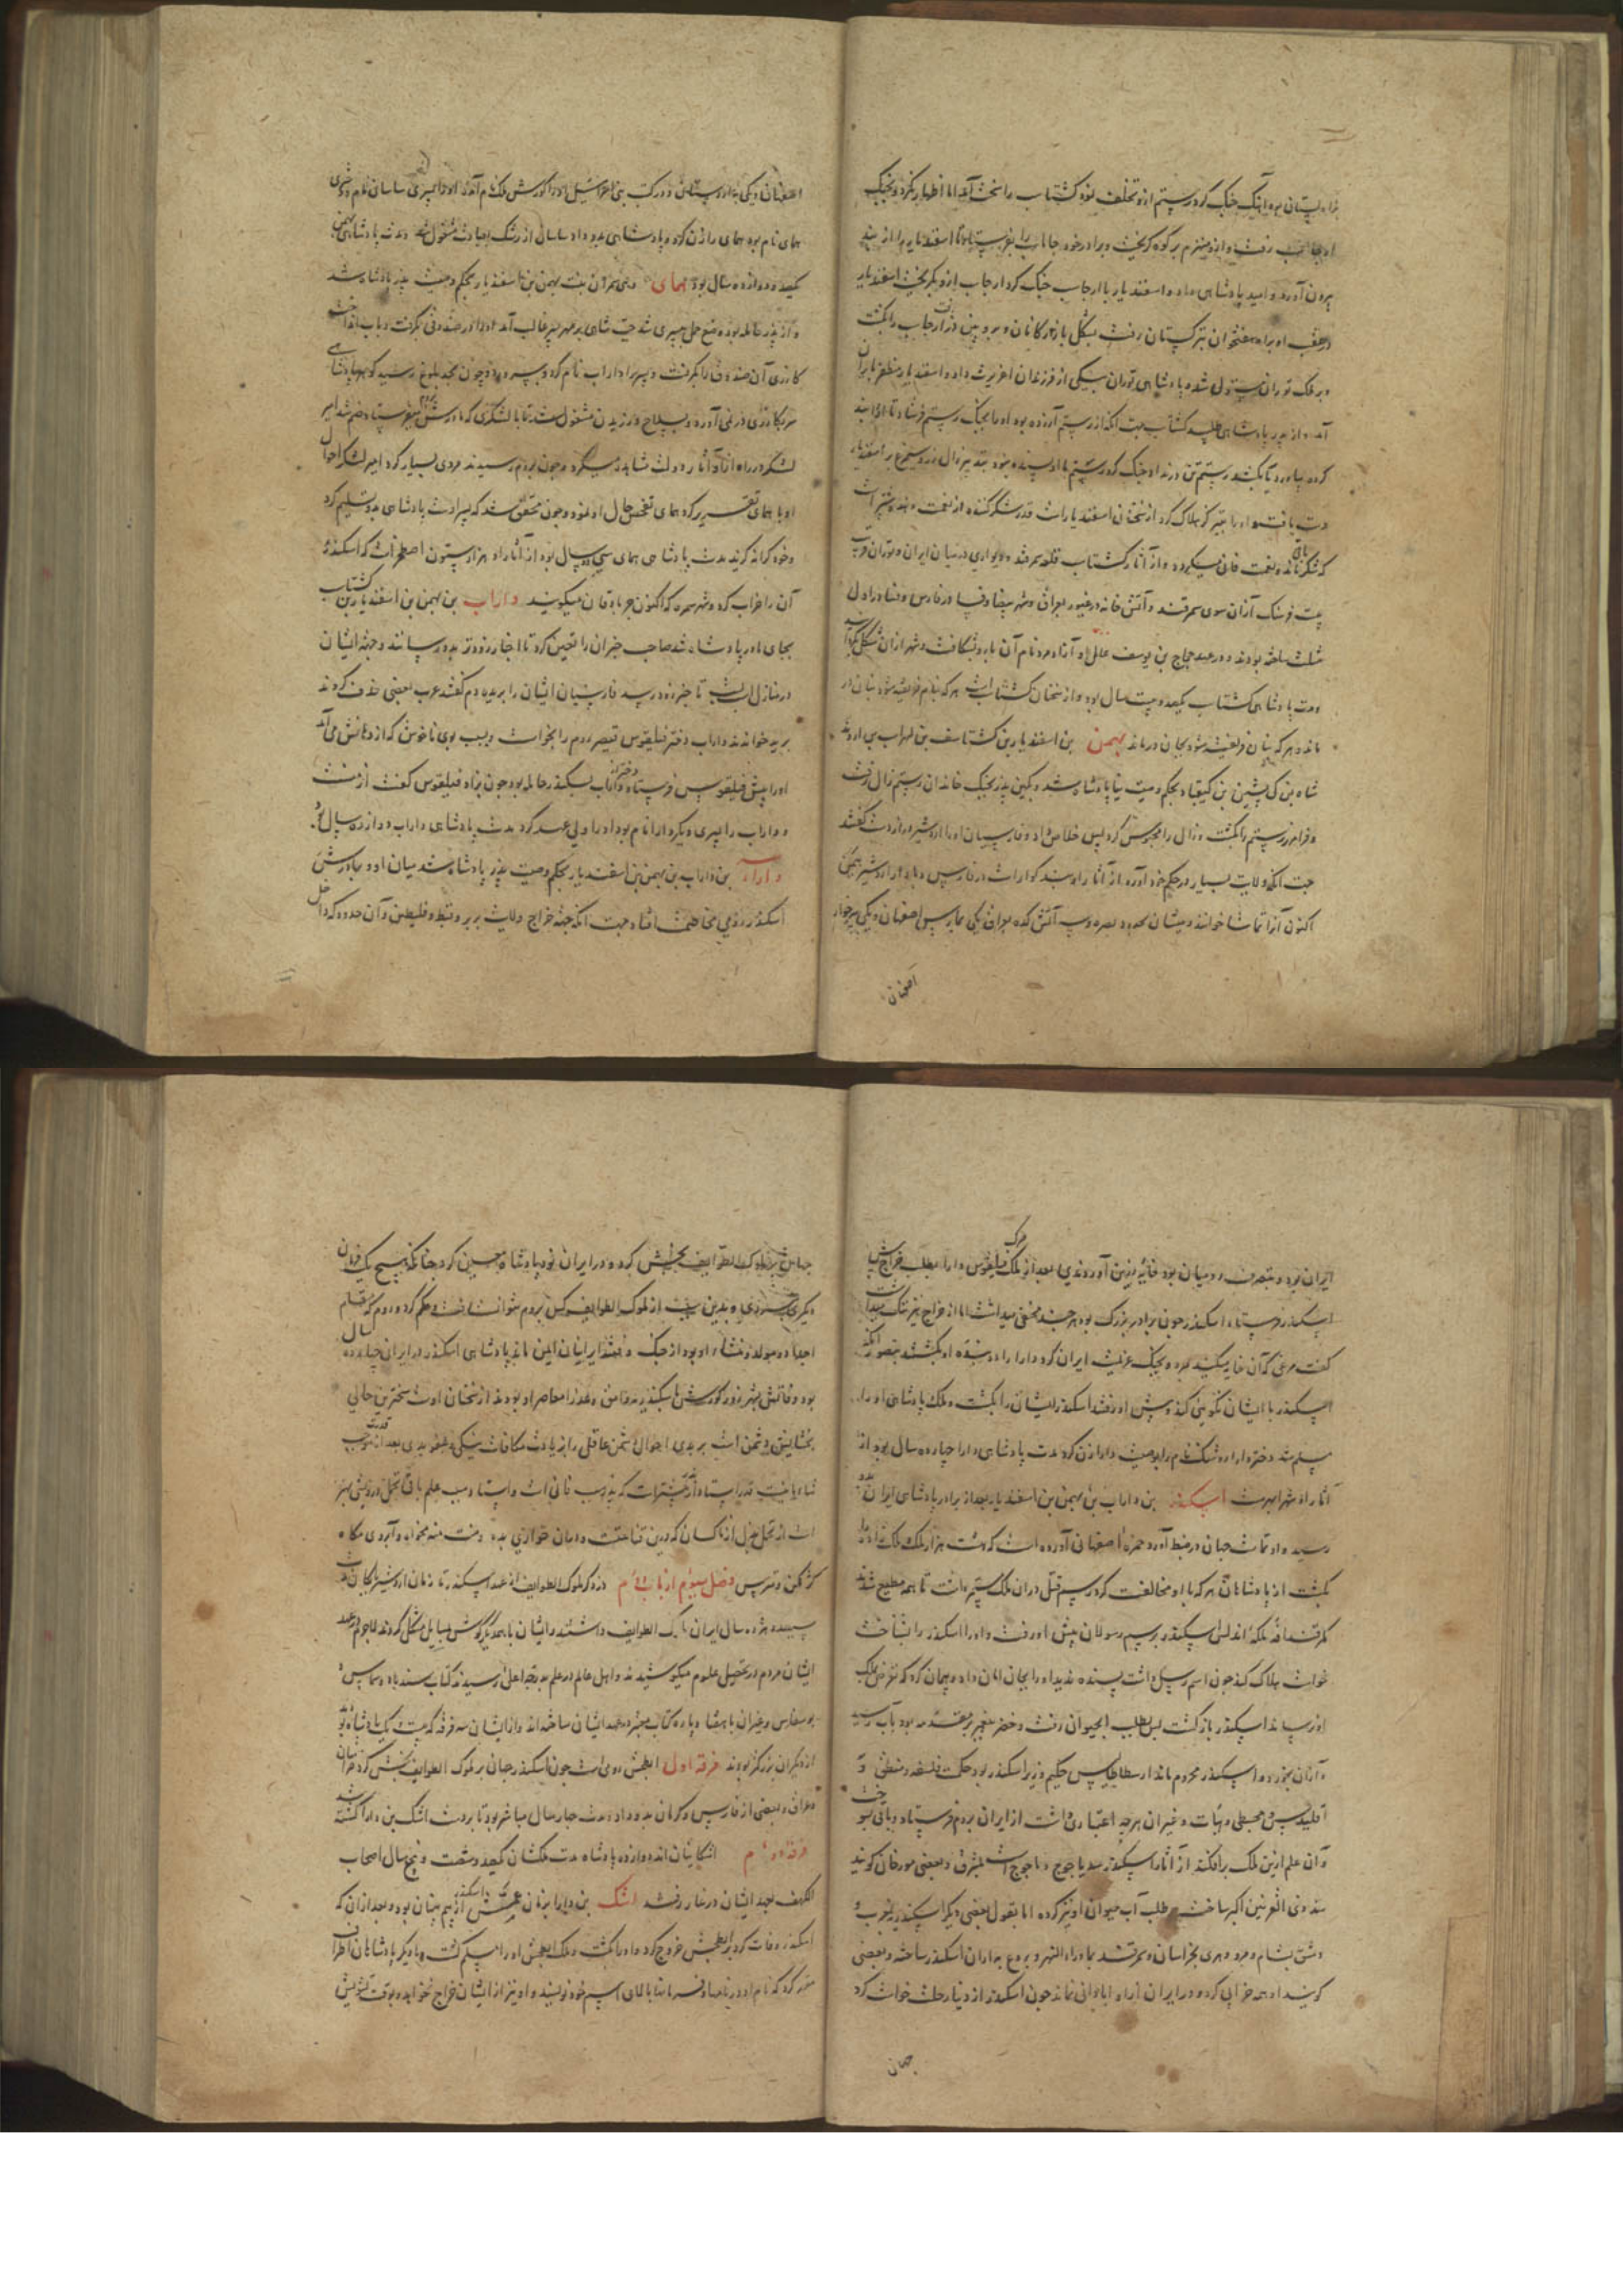 آهنگ جنگ کرد رستم ازو تخلف نمود گشتاسب را سخت آمد اما اظهار نکرد و بجنگ
رفت و ازو منهزم بر کوه گریخت و برادر خود جاماسب را بفرستاد تا اسفندیار را از بند
بیرون آورد و امید پادشاهی داد و اسفندیار با ارجاسب جنگ کرد ارجاسب ازو بگریخت اسفندیار
در عقب او براه هفتخوان بترکستان رفت بشکل بازرکانان و بروین دز رفت ارجاسب را بکشت
و بر ملک توران مستولی شد و پادشاهی توران بیکی از فرزندان اغریرث داد و اسفندیار مظفر بایران
آمد و از پدر پادشاهی طلبید گشتاسب جهت آنکه از رستم آزرده بود او را بجنگ رستم فرستاد تا او را بند
کرده بیاورد یا بکشد رستم تن درنداد جنگ کرد رستم با او بسنده نبود بتدبیر زال زر و سیمرغ بر اسفندیار
دست یافت و او را بتیر گز هلاک کرد از سخنان اسفندیار است قدر شکر کننده از نعمت دهنده بیشتر است
که شکر باقی ماند و نعمت فانی میگردد و از آثار گشتاسب قلعه سمرقند و دیواری در میان ایران و توران قرب
بیست فرسنگ از آن سوی سمرقند و آتش خانه در غیور بعراق و شهر بیضا و فسا در فارس و فسا در اول
مثلث ساخته بودند و در عهد حجاج بن یوسف عامل او آزاد مرد نام آن بارو بشکافت و شهر از آن شکل بگردانید
و مدت پادشاهی گشتاسب یکصد و بیست سال بود و از سخنان گشتاسب است هر که بنام فریفته شود بنان در
ماند و هر که بنان فریفته شود بجان درماند بهمن بن اسفندیار بن گشتاسف بن لهراسب بن اروند
شاه بن کی پشین بن کیقباد بحکم وصیت نیا پادشاه شد و بکین پدر بجنگ خاندان رستم زال رفت
و فرامرز رستم را بکشت و زال را محبوس کرد پس خلاص داد و فارسیان او را اردشیر دراز دست گفتند
جهت آنکه ولایت بسیار در حکم خود آورد از آثار او بند کوار است در فارس و بهمن اردشیر
اکنون آنرا تماشا خوانند و میشان بحدود بصره و سه آتش کده بعراق یکی بمارپس اصفهان و یکی
اصفهان
اصفهان و یکی باردستان و در کتب بنی اسرائیل او را کورش ملک نام آمده او را پسری ساسان نام و دختری
همای نام بود همای را زن کرد و پادشاهی بدو داد ساسان از رشک بعبادت مشغول شد و مدت پادشاهی بهمن
یکصد و دوازده سال بود همای و هی شهرزان بنت بهمن بن اسفندیار بحکم وصیت پدر پادشاه شد
و از پدر حامله بود وضع حمل پسری شد حب شاهی بر مهر پسر غالب آمد او را در صندوقی بگرفت و بآب انداخت
کازری آن صندوق را بگرفت و پسر را داراب نام کرد و بپرورد و چون بحد بلوغ رسید گوهر پادشاهی
سر بکازری درنمی آورد و بسلاح ورزیدن مشغول شد تا با لشکری که مادرش بروم میفرستاد ضم شد امیر
لشکر در راه از او آثار دولت مشاهده میکرد و چون بروم رسیدند مردی بسیار کرد امیر لشکر احوال
او با همای تقریر کرد همای تفحص حال او نمود و چون محقق شد که پسر اوست پادشاهی بدو تسلیم کرد
و خود کرانه گزید مدت پادشاهی همای سی و دو سال بود از آثار او هزار ستون اصطخر است که اسکندر
آن را خراب کرد و شهر سمره که اکنون جربادقان میگویند داراب بن بهمن بن اسفندیار بن گشتاسب
بجای مادر پادشاه شد صاحب خبران را تعیین کرد تا اخبار زود بدو رسانند و جهت ایشان
در منازل اسب بست تا خبر زود رسد فارسیان ایشان را بریده دم گفتند عرب بعضی حذف کردند
برید خواندند داراب دختر فیلقوس قیصر روم را بخواست و بسبب بوی ناخوش که از دهانش می آمد
او را پیش فیلقوس فرستاد و دختر از داراب بسکندر حامله بود چون بزاد فیلقوس گفت از منست
و داراب را پسری دیگر دارا نام بود او را ولی عهد کرد مدت پادشاهی داراب دوازده سال بود
دارا بن داراب بن بهمن بن اسفندیار بحکم وصیت پدر پادشاه شد میان او و برادرش
اسکندر رومی مخاصمت افتاد جهت آنکه جهة خراج ولایت بربر و قبط و فلسطین و آن حدود که داخل
ایران بود و متصرف رومیان بود خایه زرین آوردندی بعد از مرگ ملک فیلقوس دارا بطلب خراج پیش
اسکندر فرستاد اسکندر چون برادر بزرگ بود هر چند مخفی میداشت اما از خراج نیز ننگ میداشت
گفت مرغی که آن خایه میکند بپرید بجنگ عزیمت ایران کرد دارا را دو بنده او بکشتند بتصور آنکه
اسکندر با ایشان نکوئی کند و پیش او رفتند اسکندر ایشان را بکشت و ملک پادشاهی او را
مسلم شد دختر دارا روشنک نام را بوصیت دارا زن کرد مدت پادشاهی دارا چهارده سال بود از
آثار او شهر ابهرست اسکندر بن داراب بن بهمن بن اسفندیار بعد از برادر پادشاهی ایران بدو
رسید و او تمامت جهان در ضبط آورد حمزه اصفهانی آورده است که هشت هزار ملک ملک زاده را
بکشت از پادشاهان هر که با او مخالفت کرد رسم قتل در آن ملک بستد است تا همه مطیع شدند
مگر قیدافه ملکه اندلس اسکندر برسم رسولان پیش او رفت و او را اسکندر را بشناخت
خواست هلاک کند چون اسم رسیل داشت پسنده ندید او را بجان امان داد و پیمان کرد که تعرض ملک
او نرساند اسکندر بازگشت پس بطلب آب الحیوان رفت و خضر پیغمبر بر مقدمه بود بآب رسید
و از آن بخورد و اسکندر محروم ماند ارسطاطالیس حکیم وزیر اسکندر بود حکمت فلسفه و منطق و
اقلیدس و مجسطی و هیات و غیر آن هر چه اعتباری داشت از ایران بروم فرستاد و باقی بسوخت
و آن علم ازین ملک برافکند از آثار اسکندر سد یاجوج و ماجوج است بمشرق و بعضی مورخان گویند
سد ذی القرنین اکبر ساخت و طلب آب حیوان او نیز کرده اما بقول بعضی دیگر اسکندریه بمغرب و
دمشق بشام و مرو و هری بخراسان و سمرقند بماوراء النهر و بردع باران اسکندر ساخته و بعضی
گویند او همه خرابی کرد و در ایران از او آبادانی نماند چون اسکندر از دنیا رحلت خواست کرد
جهان
جهان بر ملوک الطوایف بخش کرد و در ایران نود پادشاه معین کرد چنانکه هیچ یک فرمان
دیگری نبردی و بدین سبب از ملوک الطوایف کس بروم نتوانست رفت و حکم کرد و روم که مقام
اجداد و مولد و منشاء او بود از جنگ و فتنه ایرانیان ایمن ماند پادشاهی اسکندر در ایران چهارده سال
بود وفاتش بشهر زور گورش باسکندریه وامق و عذرا معاصر او بودند از سخنان اوست سخت ترین حالی
بخشایش دشمن است بر بدی احوال دشمن عاقلی را زیادت مکافات نیکی و عفو بدی بعد از قدرت موجب
است از تحمل بخل از ناکسان که درین قناعتست و در آن خواری بده و منت منه مخواه و آبروی مکاه
فصل سیوم از باب دوم در ذکر ملوک الطوایف از عهد اسکندر تا زمان اردشیر بابکان
سیصد و هژده سال ایران ملوک الطوایف داشتند و ایشان با یکدیگر کوشش بمسایل مشکل کردند لاجرم در عهد
ایشان مردم در تحصیل علوم میکوشیدند و اهل عالم در علم بدرجه اعلی رسیدند کتاب سندباد و
یوسفاس و غیر آن با هفتاد پاره کتاب معتبر در عهد ایشان ساخته اند و از ایشان سه فرقه که بیست یک پادشاه بود
از دیگران بزرگتر بودند فرقه اول ابطحش رومی است چون اسکندر جهان بر ملوک الطوایف بخش کرد
و عراق و بعضی از فارس و کرمان بدو داد و مدت چهار سال مباشر بود تا بر دست اشک بن دارا کشته شد
فرقه دوم اشکانیان اند دوازده پادشاه مدت ملکشان یکصد و شصت و پنج سال اصحاب
الکهف بعهد ایشان در غار رفتند اشک بن دارا بزمان عمش اسکندر از بیم پنهان بود و بعد از آن که
اسکندر وفات کرد بر ابطحش خروج کرد و او را بکشت و ملک ابطحش او را مسلم گشت و با دیگر پادشاهان اطراف
مقرر کرد که نام او در نامها و فرمانها بالای اسم خود نویسند و او نیز از ایشان خراج نخواهد و بوقت تشویش